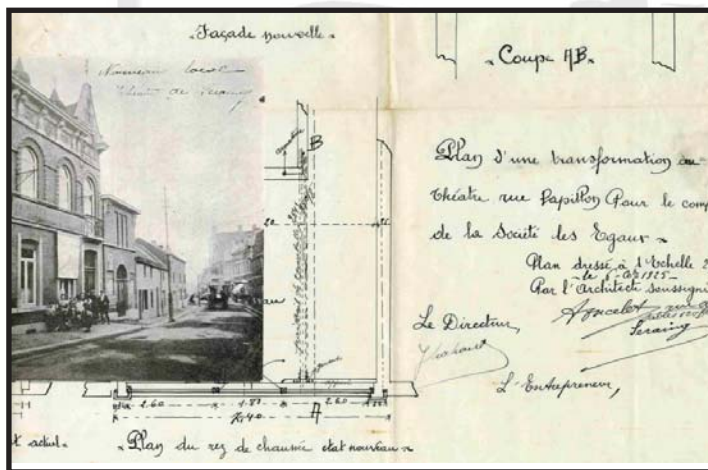 « Façade nouvelle »
« Coupe AB »
Nouveau local
Théâtre de Seraing
B
Plan d'une transformation au
théatre rue Papillon Pour le comp
de la Société les Egaux »
Plan dressé à l'Echelle 2
1925
Par l'Architecte soussigné
Le Directeur,
Seraing
L'Entrepreneur,
2.60 1.80 2.60
7.40 A
t actuel »
« Plan du rez de chaussée état nouveau »